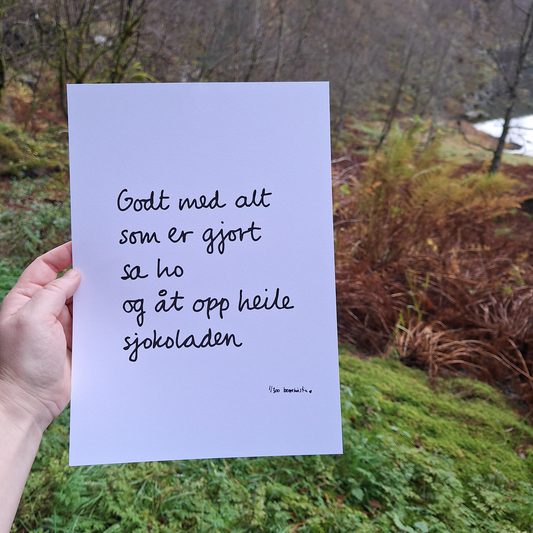 Godt med alt
som er gjort
sa ho
og åt opp heile
sjokoladen